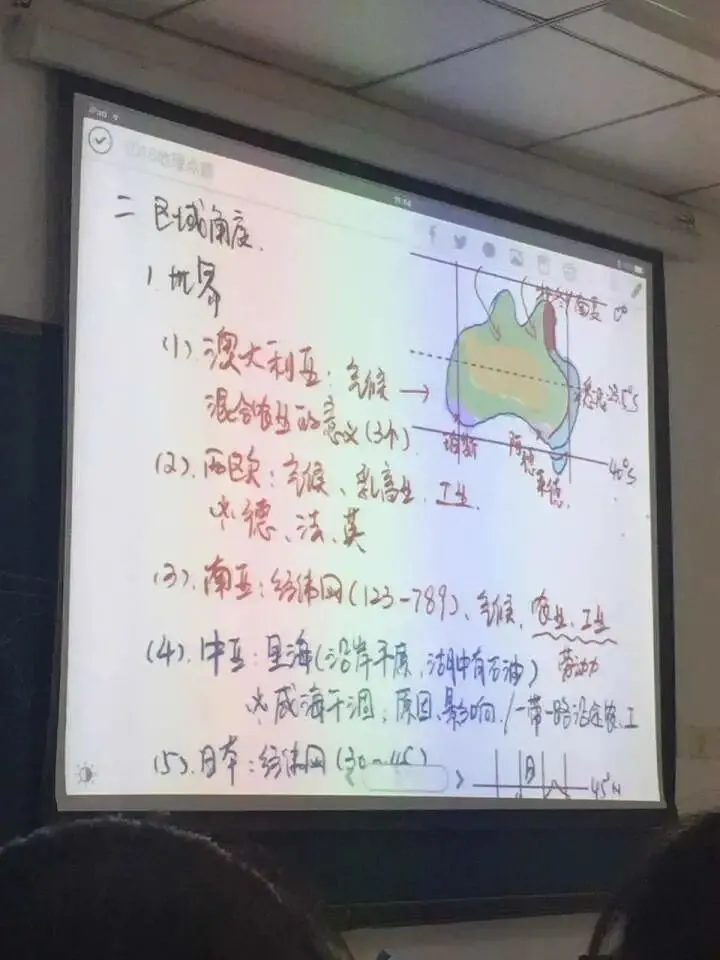 iPad
二 区域角度.
1. 世界
(1). 澳大利亚: 气候 →
混合农业的意义(3个)
0°
23.5°S
珀斯
40°S
(2). 西欧: 气候、乳畜业、工业.
德、法、英
(3). 南亚: 经纬网(123-789)、气候、农业、工业
劳动力
(4). 中亚: 里海(沿岸平原, 湖中有石油)
咸海干涸, 原因、影响 / 一带一路沿途农、工
(5). 日本: 经纬网
日
45°N